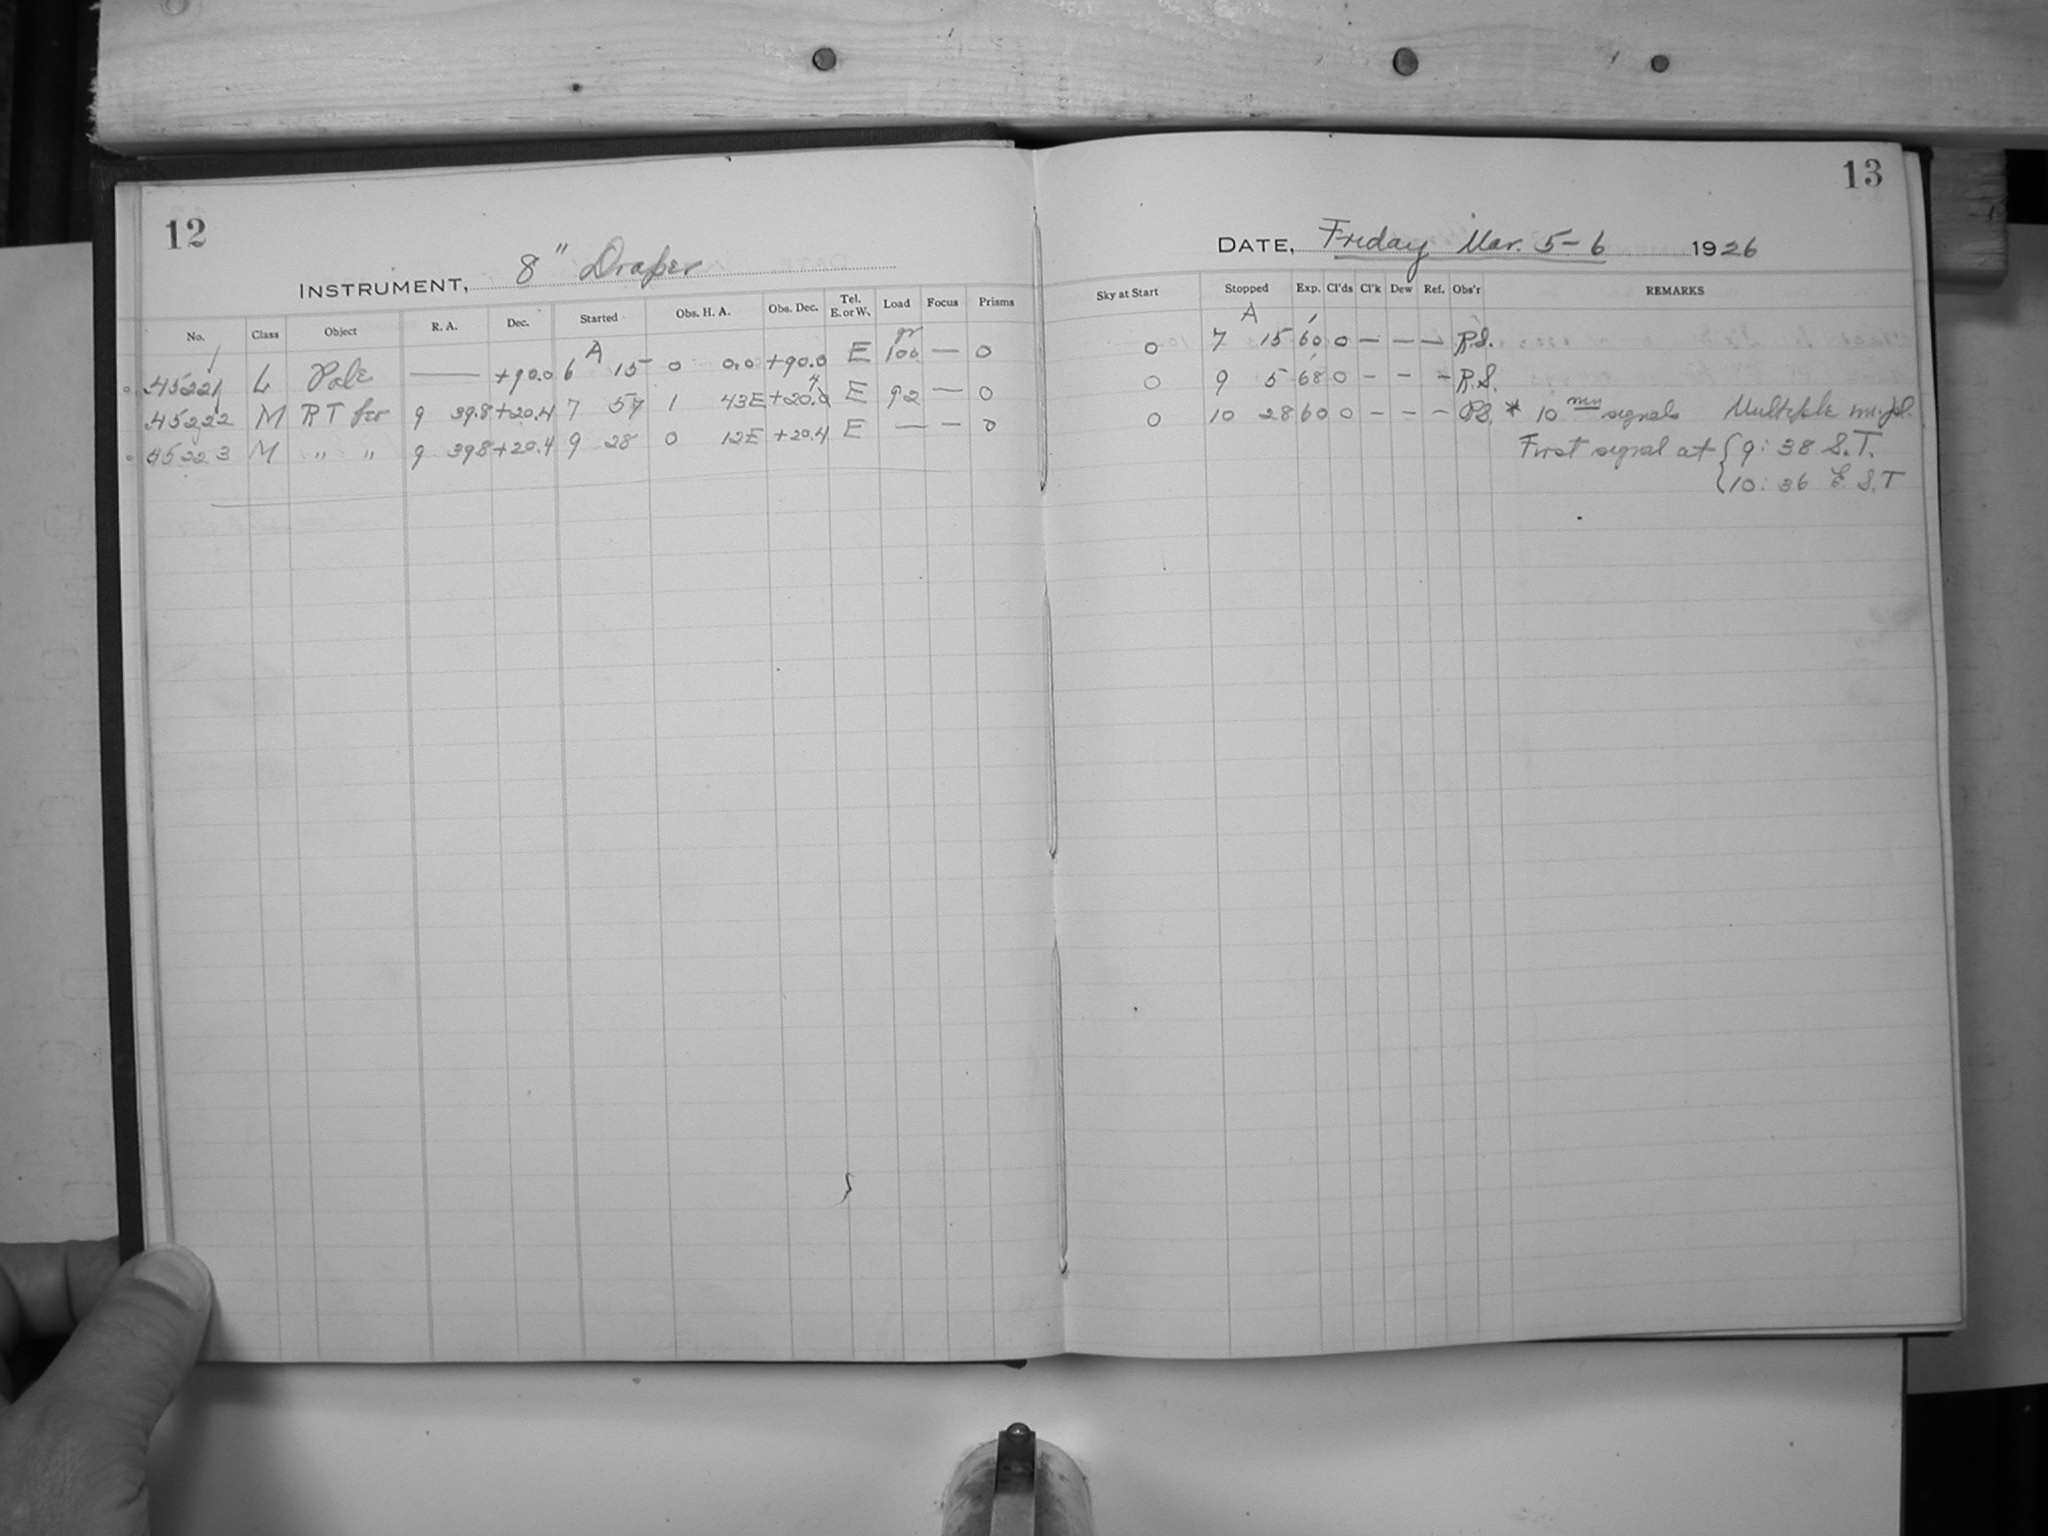 12
INSTRUMENT, 8" Draper
No. Class Object R. A. Dec. Started Obs. H. A. Obs. Dec. Tel. E. or W. Load Focus Prisms
45221 L Pole — +90.0 6 A 15 0 0.0 +90.0 E 100 — 0
45222 M R T 9 39.8 +20.4 7 57 1 43E +20.4 E 92 — 0
45223 M " " 9 39.8 +20.4 9 28 0 12E +20.4 E — — 0
13
DATE, Friday Mar. 5-6 1926
Sky at Start Stopped Exp. Cl'ds Cl'k Dew Ref. Obs'r REMARKS
0 7 A 15 60 0 — — — R.S.
0 9 5 68 0 — — — R.S.
0 10 28 60 0 — — — R.S. * 10 min signals Multiple
First signal at { 9:38 S.T.
10:36 E S.T